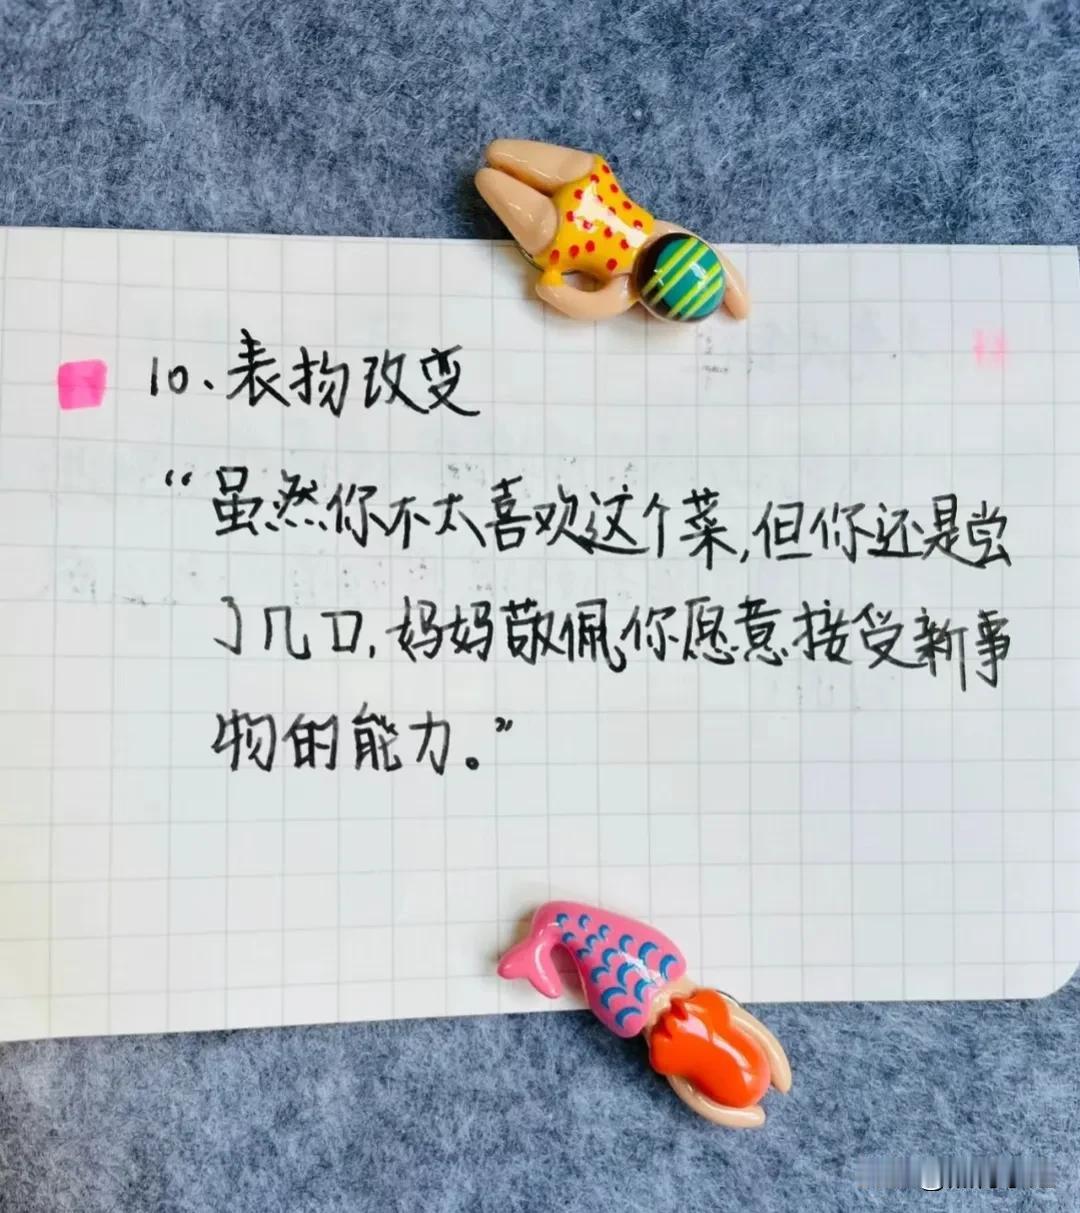 10、表扬改变
“虽然你不太喜欢这个菜,但你还是尝
了几口,妈妈敬佩你愿意接受新事
物的能力。”